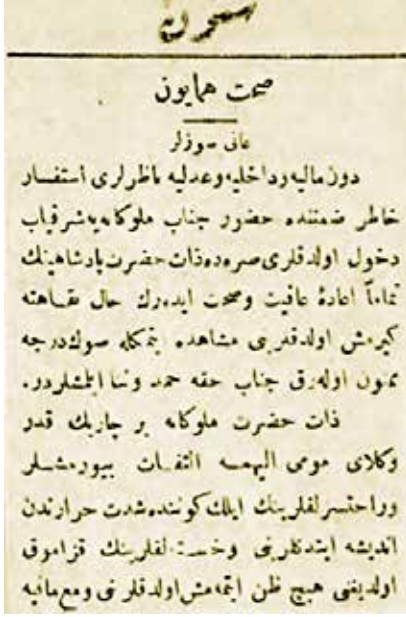 صحت همايون
عالی سوزلر
دون ماليه و داخليه و عدليه ناظرلری استفسار
خاطر ضمننده حضور جناب ملوكانه‌يه شرفياب
دخول اولدقلری صره‌ده ذات حضرت پادشاهينك
تماماً اعادهٔ عافيت وصحت ايده‌رك حال نقاهته
كيرمش اولدقلرينی مشاهده ايتمكله صوك درجه
ممنون اوله‌رق جناب حقه حمد وثنا ايتمشلردر.
ذات حضرت ملوكانه بر چاريك قدر
وكلای مومی اليهمه التفات بيورمشلر
وراحتسزلقلرينك ايلك كوننده شدت حرارتدن
انديشه ايتدكلرينی وخسته‌لقلرينك قزاموق
اولديغنی هيچ ظن ايتمه‌مش اولدقلرينی ومع مافيه